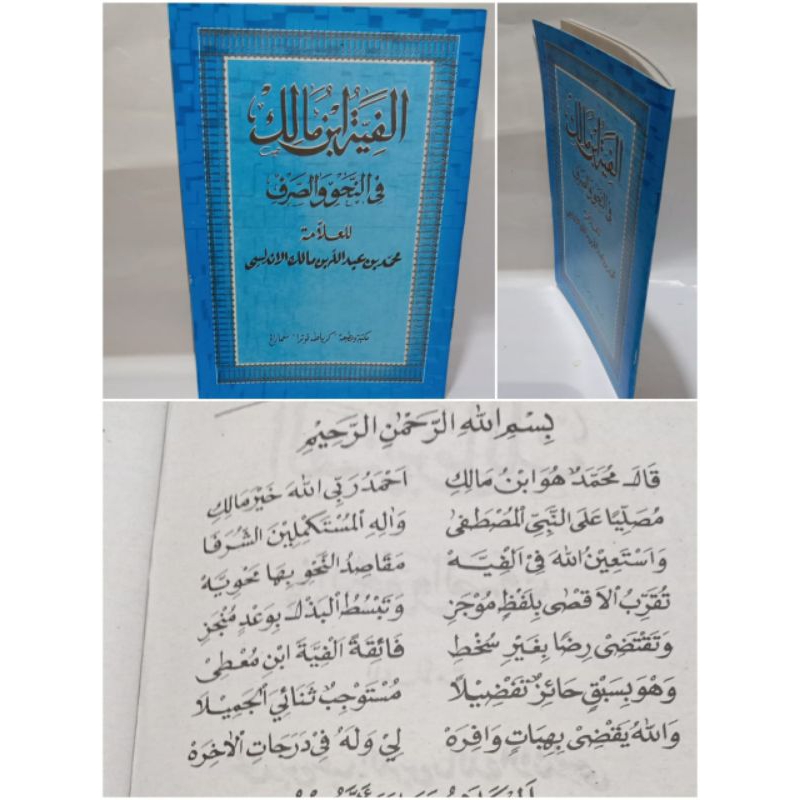 الفية ابن مالك
فى النحو والصرف
للعلامة
محمد بن عبد الله بن مالك الاندلسى
مكتبة ومطبعة "كرياطه فوترا" سمارانج
الفية ابن مالك
فى النحو والصرف
للعلامة
بِسْمِ اللهِ الرَّحْمٰنِ الرَّحِيْمِ
قَالَ مُحَمَّدٌ هُوَ ابْنُ مَالِكِ اَحْمَدُ رَبِّى اللهَ خَيْرَ مَالِكِ
مُصَلِّيًا عَلَى النَّبِيِّ الْمُصْطَفٰى وَاٰلِهِ الْمُسْتَكْمِلِيْنَ الشَّرَفَا
وَاَسْتَعِيْنُ اللهَ فِى اَلْفِيَّه مَقَاصِدُ النَّحْوِ بِهَا مَحْوِيَّه
تُقَرِّبُ الْاَقْصٰى بِلَفْظٍ مُوْجَزِ وَتَبْسُطُ الْبَذْلَ بِوَعْدٍ مُنْجَزِ
وَتَقْتَضِى رِضًا بِغَيْرِ سُخْطِ فَائِقَةً اَلْفِيَّةَ ابْنِ مُعْطِى
وَهْوَ بِسَبْقٍ حَائِزٌ تَفْضِيْلًا مُسْتَوْجِبٌ ثَنَائِيَ الْجَمِيْلَا
وَاللهُ يَقْضِى بِهِبَاتٍ وَافِرَهْ لِيْ وَلَهُ فِيْ دَرَجَاتِ الْاٰخِرَهْ